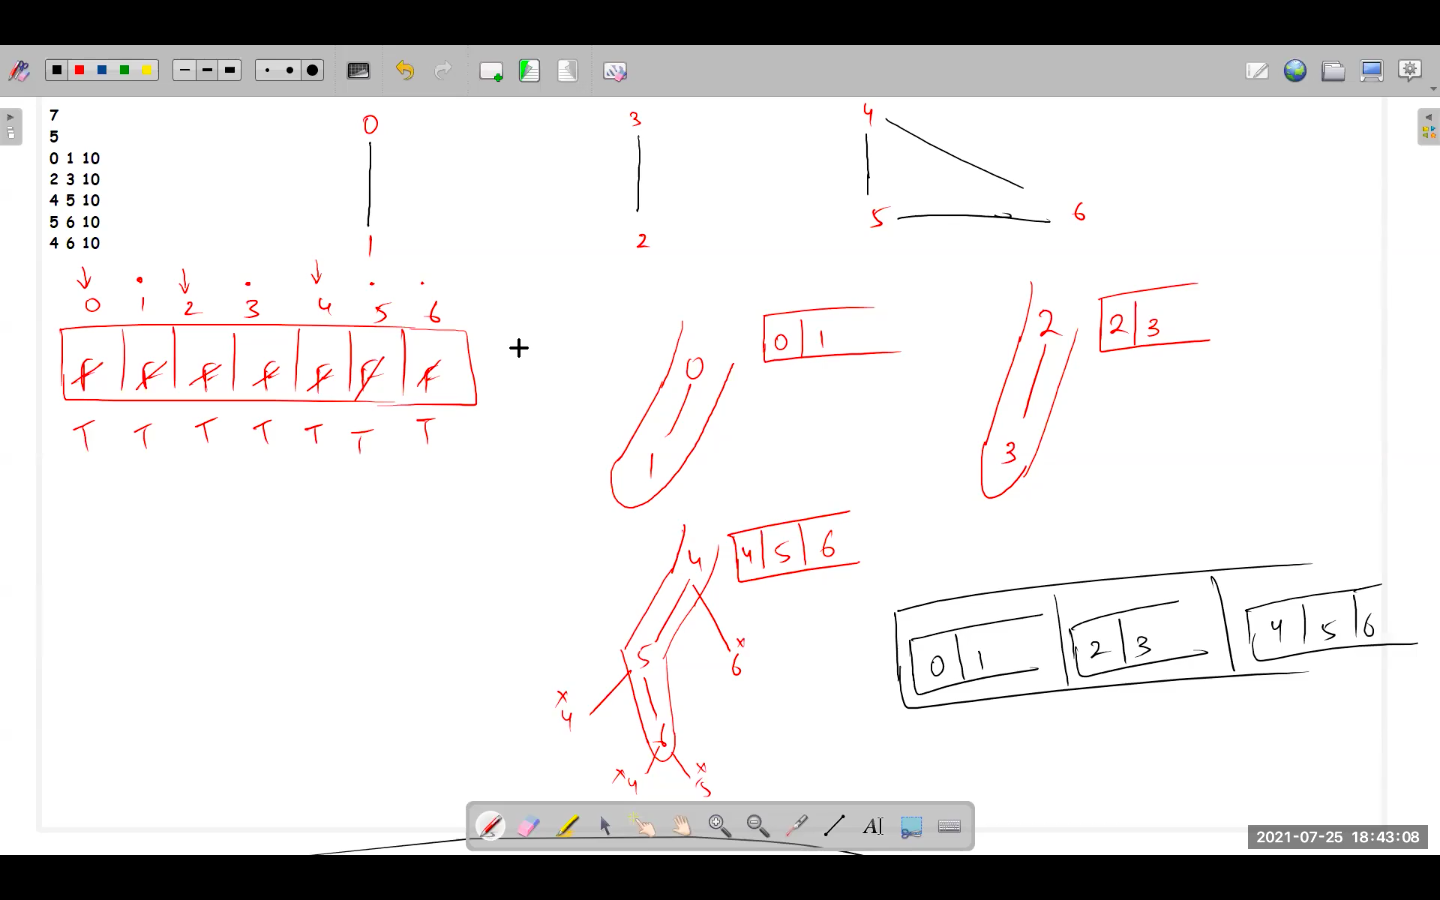 7
5
0 1 10
2 3 10
4 5 10
5 6 10
4 6 10
0
1
3
2
4
5
6
0 1 2 3 4 5 6
f f f f f f f
T T T T T T T
0
1
0 1
2
3
2 3
4
5
6
4
6
4
5
4 5 6
0 1 2 3 4 5 6
A
2021-07-25 18:43:08